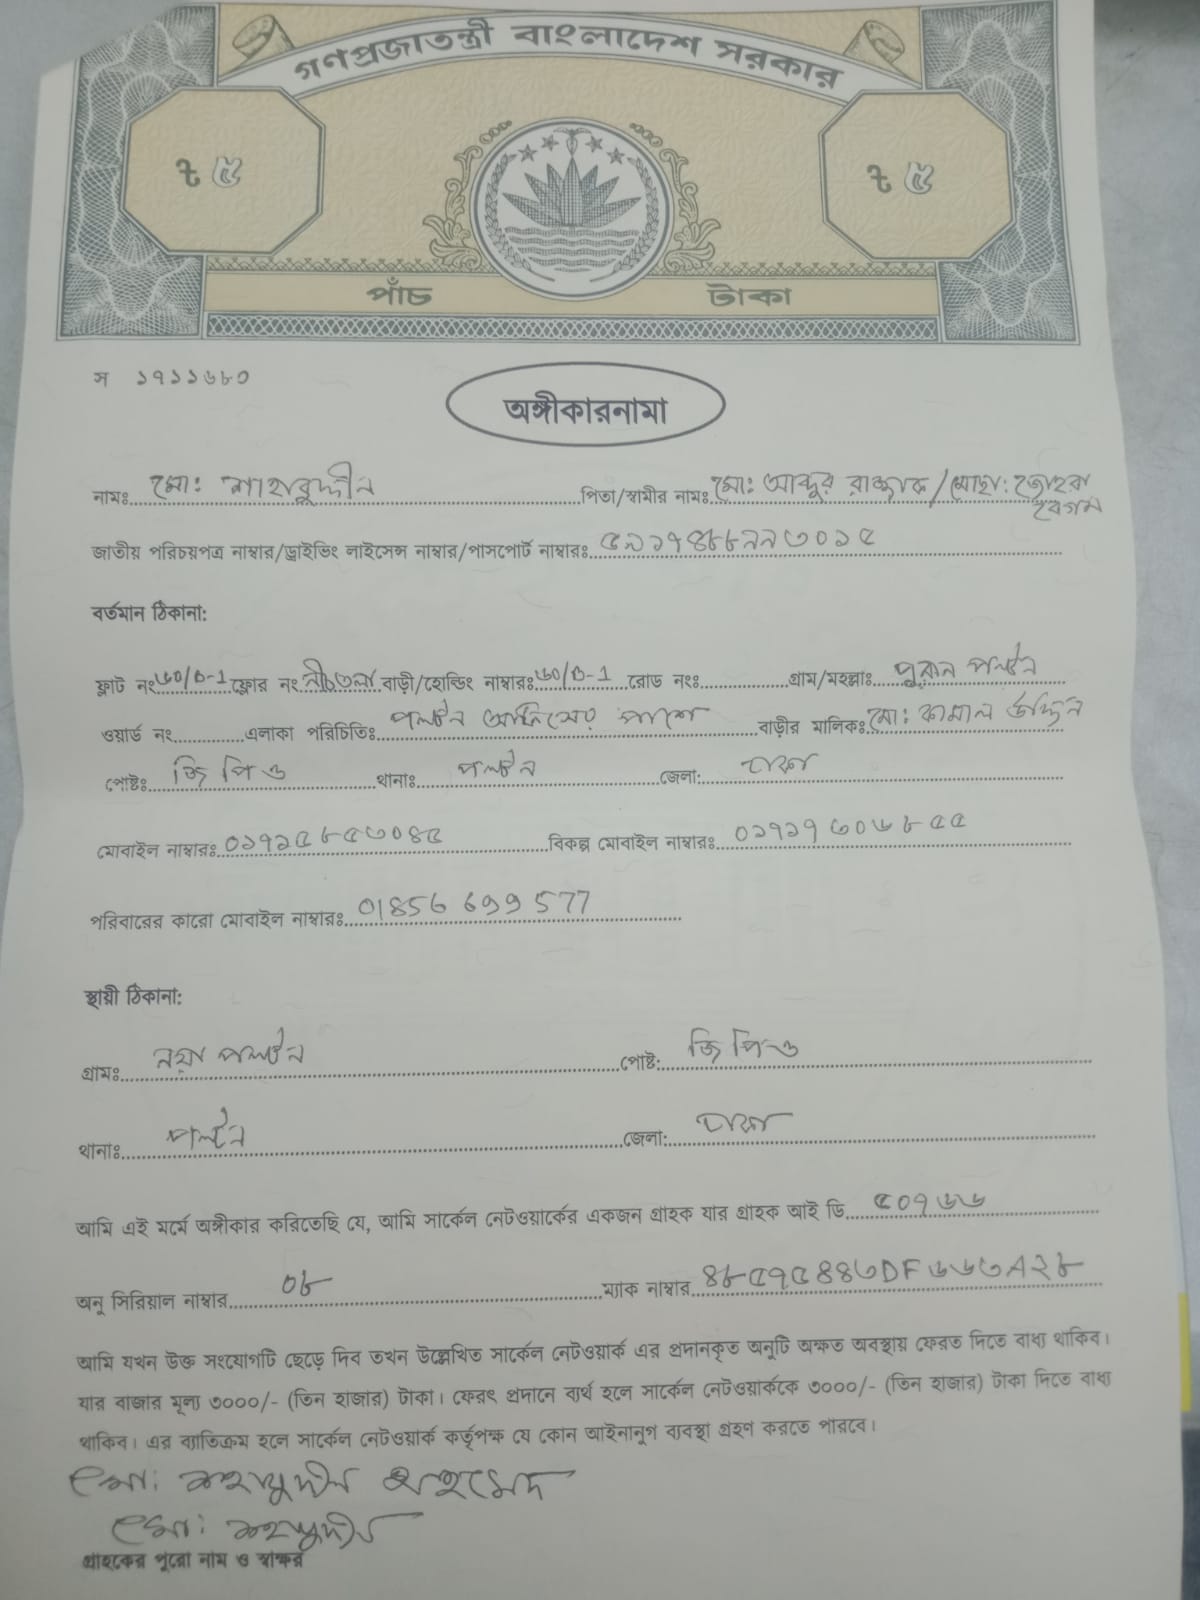 গণপ্রজাতন্ত্রী বাংলাদেশ সরকার
৳ ৫ ৳ ৫
পাঁচ টাকা
স ১৭১১৬৮০
অঙ্গীকারনামা
নামঃ মো: শাহাবুদ্দীন পিতা/স্বামীর নামঃ মো: আব্দুর রাজ্জাক/মোছা: জোহরা বেগম
জাতীয় পরিচয়পত্র নাম্বার/ড্রাইভিং লাইসেন্স নাম্বার/পাসপোর্ট নাম্বারঃ ৫৯১৭৪৮৮৯৯৩০১৫
বর্তমান ঠিকানা:
ফ্লাট নং ৬০/D-1 ফ্লোর নং নীচতলা বাড়ী/হোল্ডিং নাম্বারঃ ৬০/D-1 রোড নং গ্রাম/মহল্লাঃ পুরান পল্টন
ওয়ার্ড নং এলাকা পরিচিতিঃ পল্টন অফিসের পাশে বাড়ীর মালিকঃ মো: কামাল উদ্দিন
পোষ্টঃ জি পি ও থানাঃ পল্টন জেলা: ঢাকা
মোবাইল নাম্বারঃ ০১৭১৫৮৫৩০৪৫ বিকল্প মোবাইল নাম্বারঃ ০১৭১৭৩০৬৮৫৫
পরিবারের কারো মোবাইল নাম্বারঃ 01856 699 577
স্থায়ী ঠিকানা:
গ্রামঃ নয়া পল্টন পোষ্ট: জি পি ও
থানাঃ পল্টন জেলা: ঢাকা
আমি এই মর্মে অঙ্গীকার করিতেছি যে, আমি সার্কেল নেটওয়ার্কের একজন গ্রাহক যার গ্রাহক আই ডি ৫০৭৬৬
অনু সিরিয়াল নাম্বার ০৮ ম্যাক নাম্বার ৪৮৫৭৫৪৪৩DF৬৬৩A২৮
আমি যখন উক্ত সংযোগটি ছেড়ে দিব তখন উল্লেখিত সার্কেল নেটওয়ার্ক এর প্রদানকৃত অনুটি অক্ষত অবস্থায় ফেরত দিতে বাধ্য থাকিব।
যার বাজার মূল্য ৩০০০/- (তিন হাজার) টাকা। ফেরৎ প্রদানে ব্যর্থ হলে সার্কেল নেটওয়ার্ককে ৩০০০/- (তিন হাজার) টাকা দিতে বাধ্য
থাকিব। এর ব্যতিক্রম হলে সার্কেল নেটওয়ার্ক কর্তৃপক্ষ যে কোন আইনানুগ ব্যবস্থা গ্রহণ করতে পারবে।
মো: শাহাবুদ্দীন আহমেদ
মো: শাহাবুদ্দীন
গ্রাহকের পুরো নাম ও স্বাক্ষর